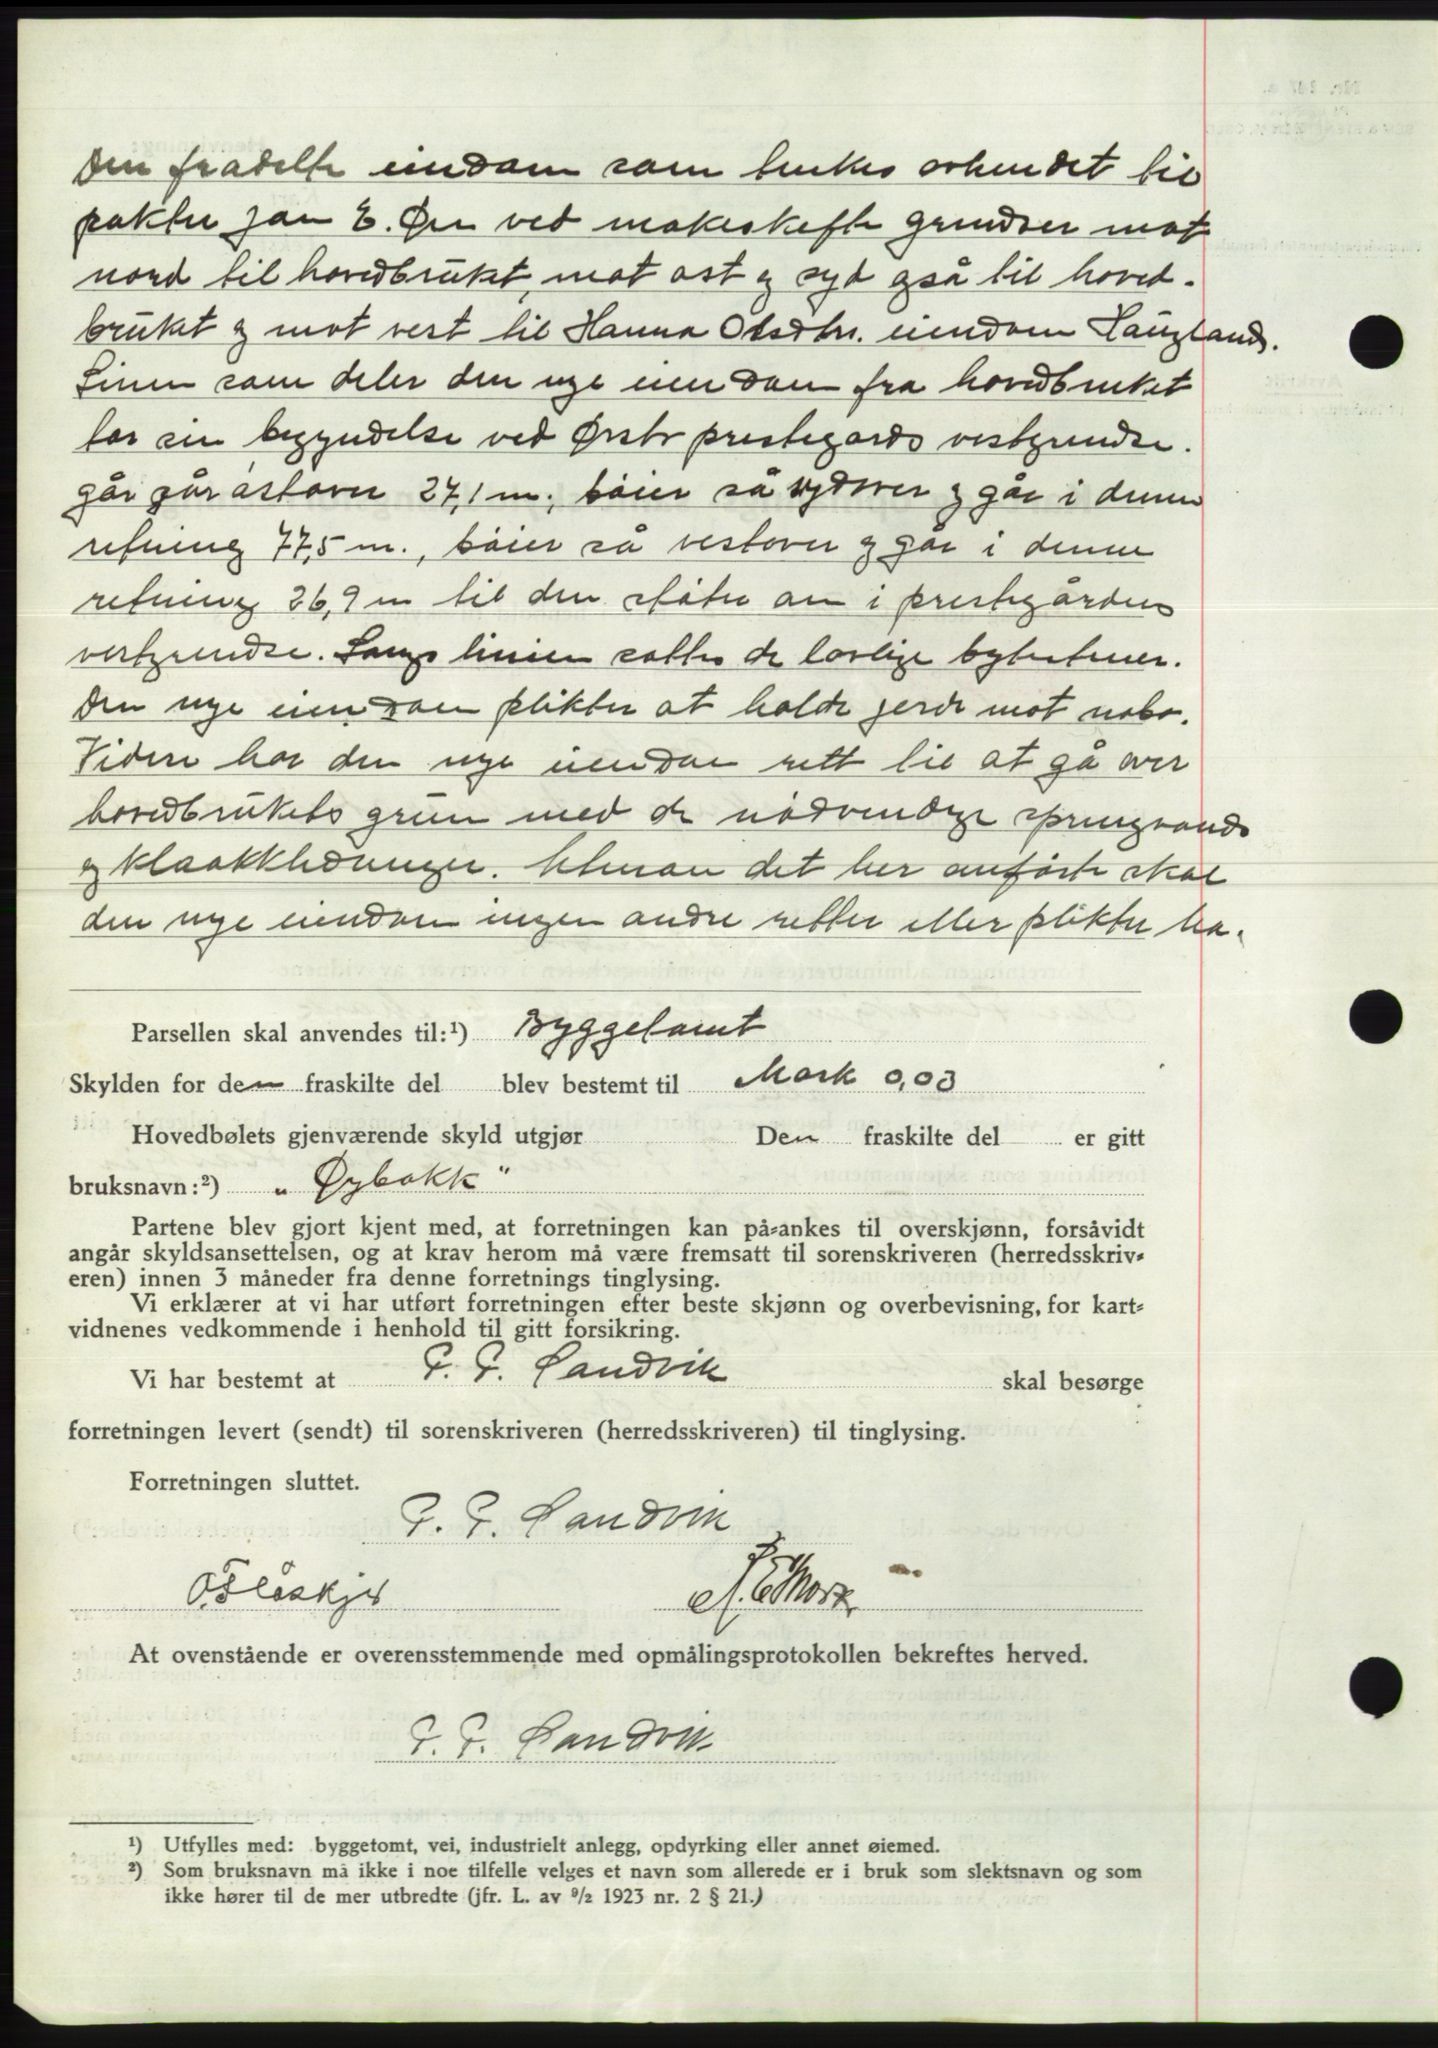 Den fradelte eiendom som tenkes avhendet til
pakter Jan E. Øen ved makeskefte grendser mot
nord til hovedbruket, mot ost og syd også til hoved-
bruket og mot vest til Hanna Olsdtr. eiendom Haugland.
Linen som deler den nye eiendom fra hovedbruket
tar sin begyndelse ved Ørsta prestegards vestgrendse.
går så ostover 27,1 m., bøier så sydover og går i denne
retning 77,5 m., bøier så vestover og går i denne
retning 26,9 m til den støter an i prestegårdens
vestgrendse. Langs linien sattes de lovlige bytesteiner.
Den nye eiendom plikter at holde jerde mot nabo.
Videre har den nye eiendom rett til at gå over
hovedbrukets grun med de nødvendige springvands
og kloakkledninger. Utenom det her anførte skal
den nye eiendom ingen andre retter eller plikter ha.
Parsellen skal anvendes til:¹) Byggetomt
Skylden for den fraskilte del blev bestemt til Mark 0,03
Hovedbølets gjenværende skyld utgjør Den fraskilte del er gitt
bruksnavn:²) „Øybakk"
Partene blev gjort kjent med, at forretningen kan på-ankes til overskjønn, forsåvidt
angår skyldsansettelsen, og at krav herom må være fremsatt til sorenskriveren (herredsskriv-
eren) innen 3 måneder fra denne forretnings tinglysing.
Vi erklærer at vi har utført forretningen efter beste skjønn og overbevisning, for kart-
vidnenes vedkommende i henhold til gitt forsikring.
Vi har bestemt at P. P. Sandvik skal besørge
forretningen levert (sendt) til sorenskriveren (herredsskriveren) til tinglysing.
Forretningen sluttet.
P. P. Sandvik
O. Flåskjer
At ovenstående er overensstemmende med opmålingsprotokollen bekreftes herved.
P. P. Sandvik
¹) Utfylles med: byggetomt, vei, industrielt anlegg, opdyrking eller annet øiemed.
²) Som bruksnavn må ikke i noe tilfelle velges et navn som allerede er i bruk som slektsnavn og som
ikke hører til de mer utbredte (jfr. L. av ⁹/₂ 1923 nr. 2 § 21.)